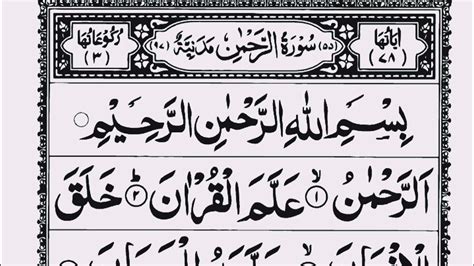 اٰيَاتُهَا ﴿٧٨﴾ ﴿٥٥﴾ سُوْرَةُ الرَّحْمٰنِ مَدَنِيَّةٌ ﴿٩٧﴾ رُكُوْعَاتُهَا ﴿٣﴾
بِسْمِ اللّٰهِ الرَّحْمٰنِ الرَّحِيْمِ
اَلرَّحْمٰنُ ۙ﴿١﴾ عَلَّمَ الْقُرْاٰنَ ؕ﴿٢﴾ خَلَقَ